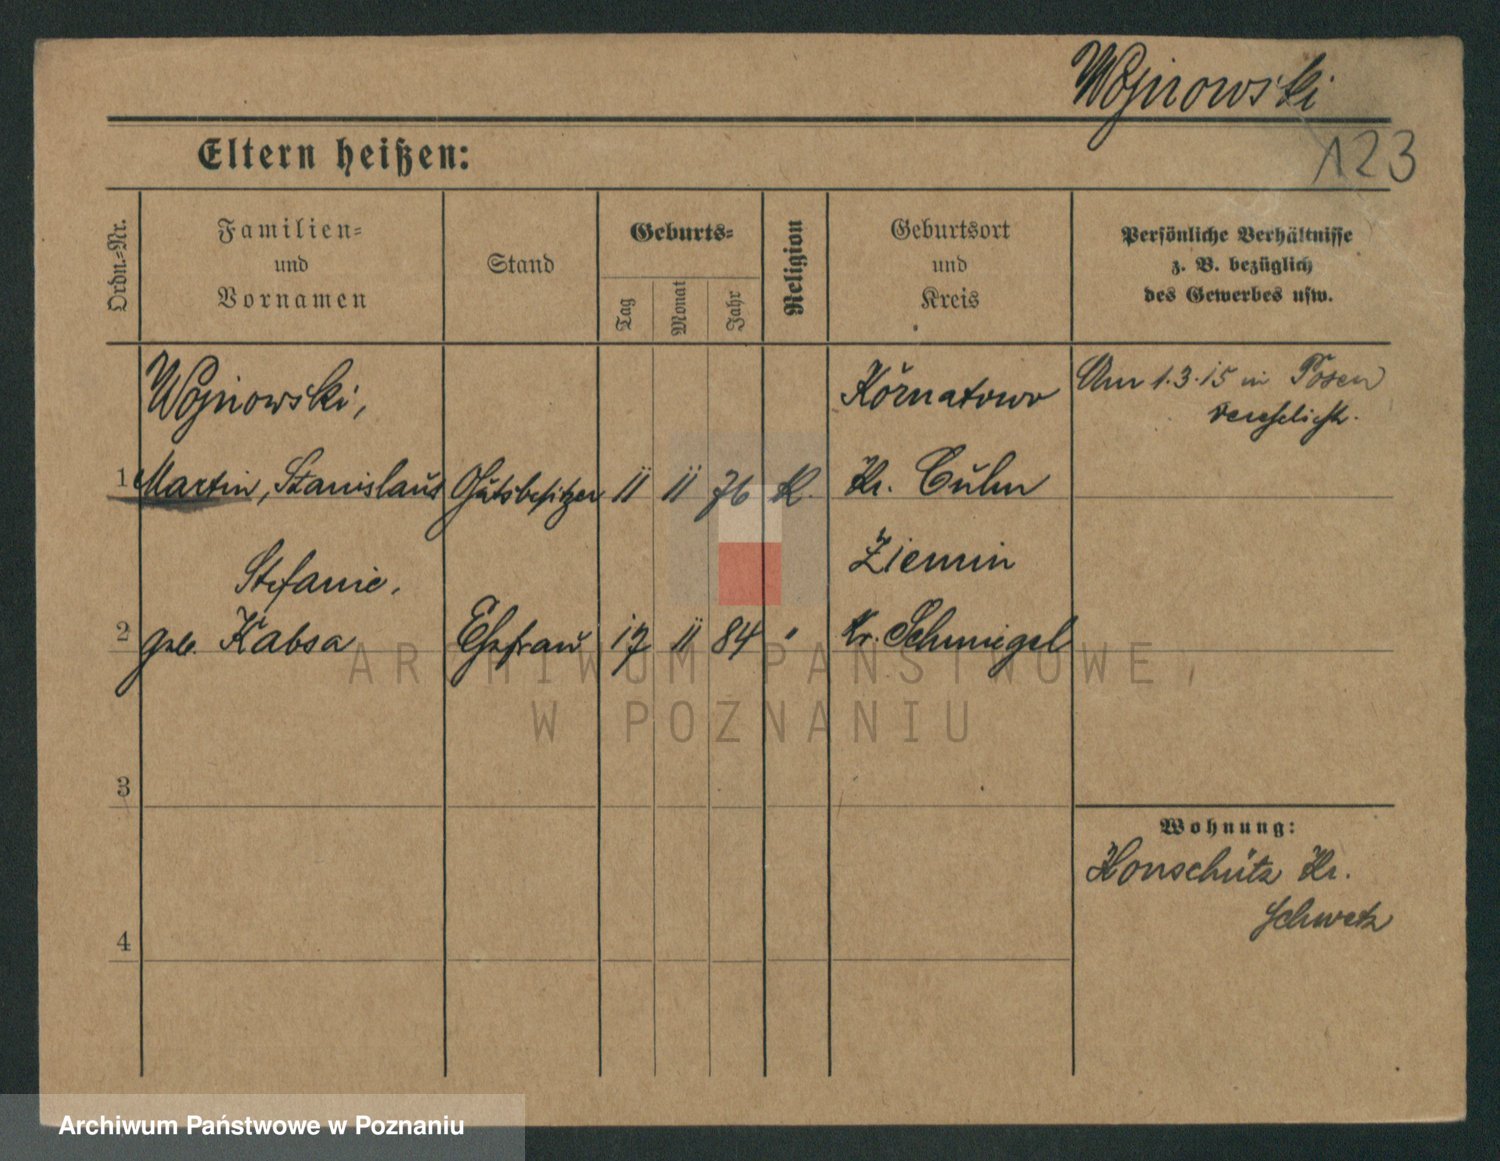 Wojnowski
123
Eltern heißen:
Ordn.=Nr.
Familien=
und
Vornamen
Stand
Geburts=
Tag
Monat
Jahr
Religion
Geburtsort
und
Kreis
Persönliche Verhältnisse
z. B. bezüglich
des Gewerbes usw.
Wojnowski,
Körnatowo
Am 1.3.15 in Posen
verehelicht.
1 Martin, Stanislaus Gutsbesitzer 11 11 76 K. Kr. Culm
Stefanie,
Ziemin
2 geb. Kabsa Ehefrau 17 11 84 " Kr. Schmiegel
ARCHIWUM PAŃSTWOWE
W POZNANIU
3
Wohnung:
Konschütz Kr.
Schwetz
4
Archiwum Państwowe w Poznaniu